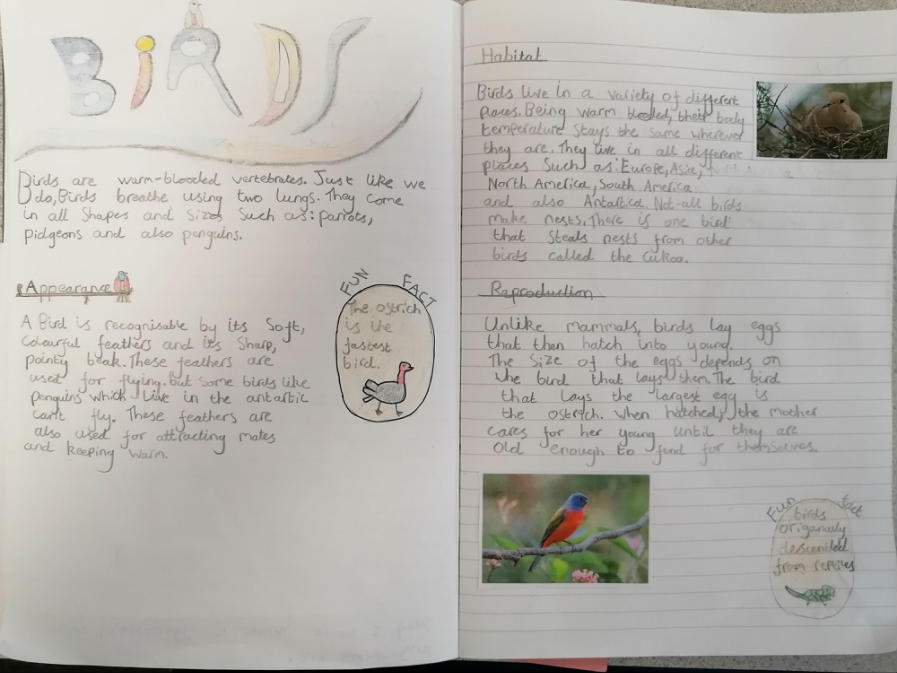 BiRDS
Birds are warm-blooded vertebrates. Just like we
do, Birds breathe using two lungs. They come
in all shapes and sizes such as: parrots,
pidgeons and also penguins.
Appearance
A Bird is recognisable by its soft,
colourful feathers and its sharp,
pointy beak. These feathers are
used for flying. but some birds like
penguins which live in the antartic
can't fly. These feathers are
also used for attracting mates
and keeping warm.
FUN FACT
The ostrich
is the
fastest
bird.
Habitat
Birds live in a variety of different
places. Being warm blooded, their body
temperature stays the same wherever
they are. They live in all different
places such as: Europe, Asia,
North America, South America
and also Antartica Not-all birds
make nests. There is one bird
that steals nests from other
birds called the Cukoo.
Reproduction
Unlike mammals, birds lay eggs
that then hatch into young.
The size of the eggs depends on
the bird that lays them. The bird
that lays the largest egg is
the ostrich. When hatched, the mother
cares for her young until they are
old enough to fund for themselves.
Fun fact
birds
origanaly
descended
from reptiles